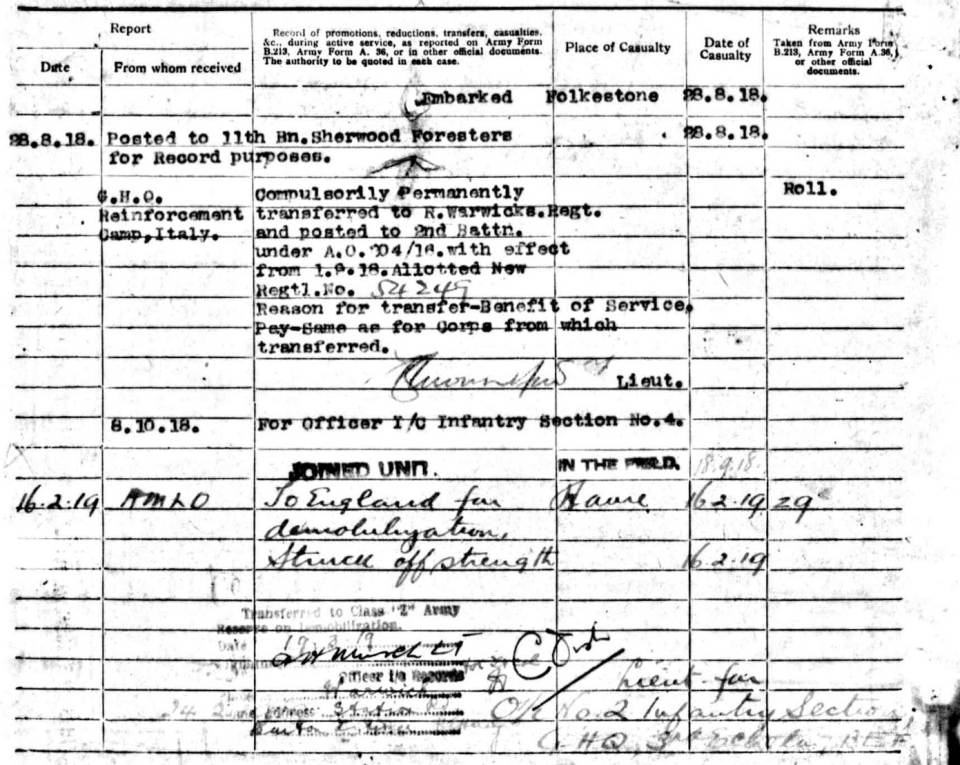 Report
Record of promotions, reductions, transfers, casualties,
&c., during active service, as reported on Army Form
B.213, Army Form A. 36, or in other official documents.
The authority to be quoted in each case.
Place of Casualty
Date of
Casualty
Remarks
Taken from Army Form
B.213, Army Form A.36,
or other official
documents.
Date
From whom received
Embarked Folkestone 28.8.18.
28.8.18. Posted to 11th Bn.Sherwood Foresters 28.8.18.
for Record purposes.
G.H.Q. Compulsorily Permanently Roll.
Reinforcement transferred to R.Warwicks.Regt.
Camp,Italy. and posted to 2nd Battn.
under A.O. 204/16.with effect
from 1.9.18.Allotted New
Regtl.No. 54249
Reason for transfer-Benefit of Service.
Pay-Same as for Corps from which
transferred.
Lieut.
8.10.18. For Officer I/C Infantry Section No.4.
JOINED UNIT. IN THE FIELD. 18.9.18.
16.2.19 AMLO To England for Havre 16.2.19 29
demobilization.
Struck off strength 16.2.19
Transferred to Class "Z" Army
Reserve on Demobilization.
Date 19.3.19
Officer i/c Records
Warwick
Lieut for
O/c No. 2 Infantry Section,
G.H.Q. 3rd Echelon, B.E.F